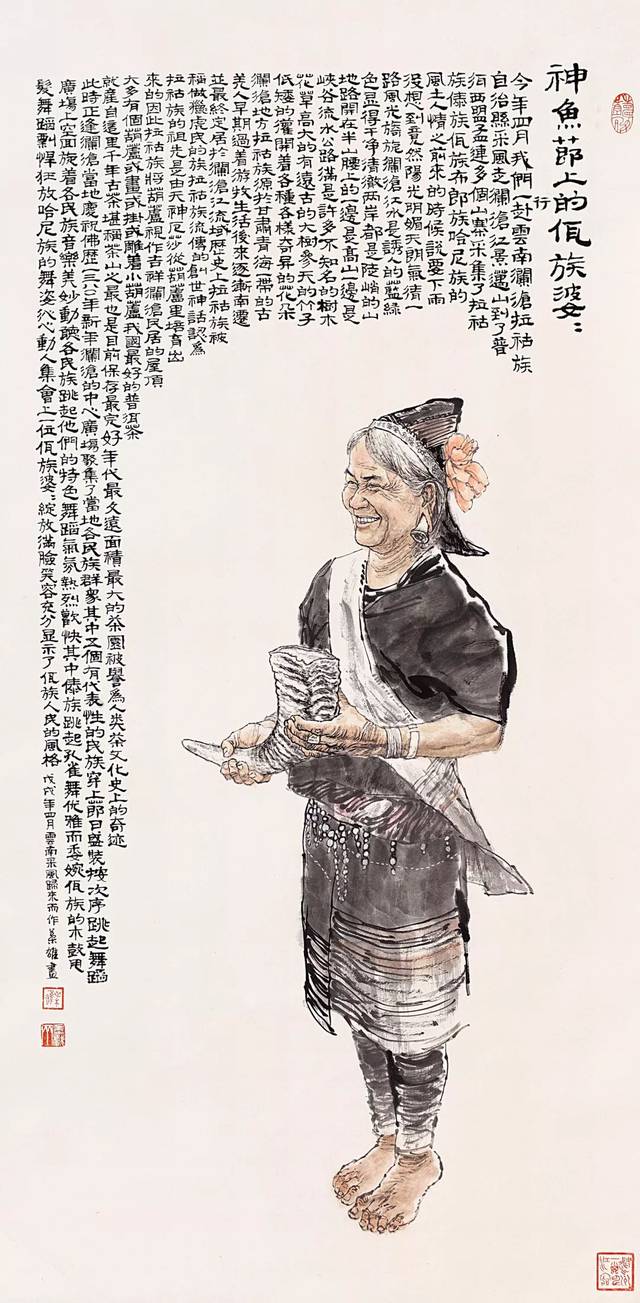 神魚節上的佤族婆〻
今年四月我們一行赴雲南瀾滄拉祜族
自治縣采風走瀾滄江景邁山到了普
洱西盟孟連多個山寨采集了拉祜
族傣族佤族布郎族哈尼族的
風土人情之前來的時候説要下雨
没想到竟然陽光明媚天朗氣清一
路風光旖旎瀾滄江水是誘人的藍綠
色顯得干净清澈兩岸都是陡峭的山
地路開在半山腰上的一邊是高山一邊是
峽谷流水公路滿是許多不知名的樹木
花草高大的有遠古的大樹參天的竹子
低矮的灌開着各種各樣奇异的花朵
瀾滄地方拉祜族源於甘肅青海一帶的古
羌人早期過着游牧生活後來逐漸南遷
並最終定居於瀾滄江流域歷史上拉祜族被
稱做獵虎民的族拉祜族流傳的創世神話認爲
拉祜族的祖先是由天神厄莎從葫蘆里培育出
來的因此拉祜族將葫蘆視作吉祥瀾滄民居的屋頂
大多有個葫蘆或畫或掛或雕着小葫蘆我國最好的普洱茶
就產自這里千年古茶堪稱茶山之最也是目前保存最完好年代最久遠面積最大的茶園被譽爲人类茶文化史上的奇迹
此時正逢瀾滄當地慶祝佛歷年新年瀾滄的中心廣場聚集了當地各民族群衆其中五個有代表性的民族穿上節日盛裝按次序跳起舞蹈
廣場上空面旋着各民族音樂美妙動聽各民族跳起他們的特色舞蹈氣氛熱烈歡快其中傣族跳起孔雀舞优雅而委婉佤族的木鼓甩
髮舞蹈剽悍狂放哈尼族的舞姿沁心動人集會上一位佤族婆〻綻放滿臉笑容充分显示了佤族人民的風格 戊戌年四月雲南采風歸來而作 雄畫